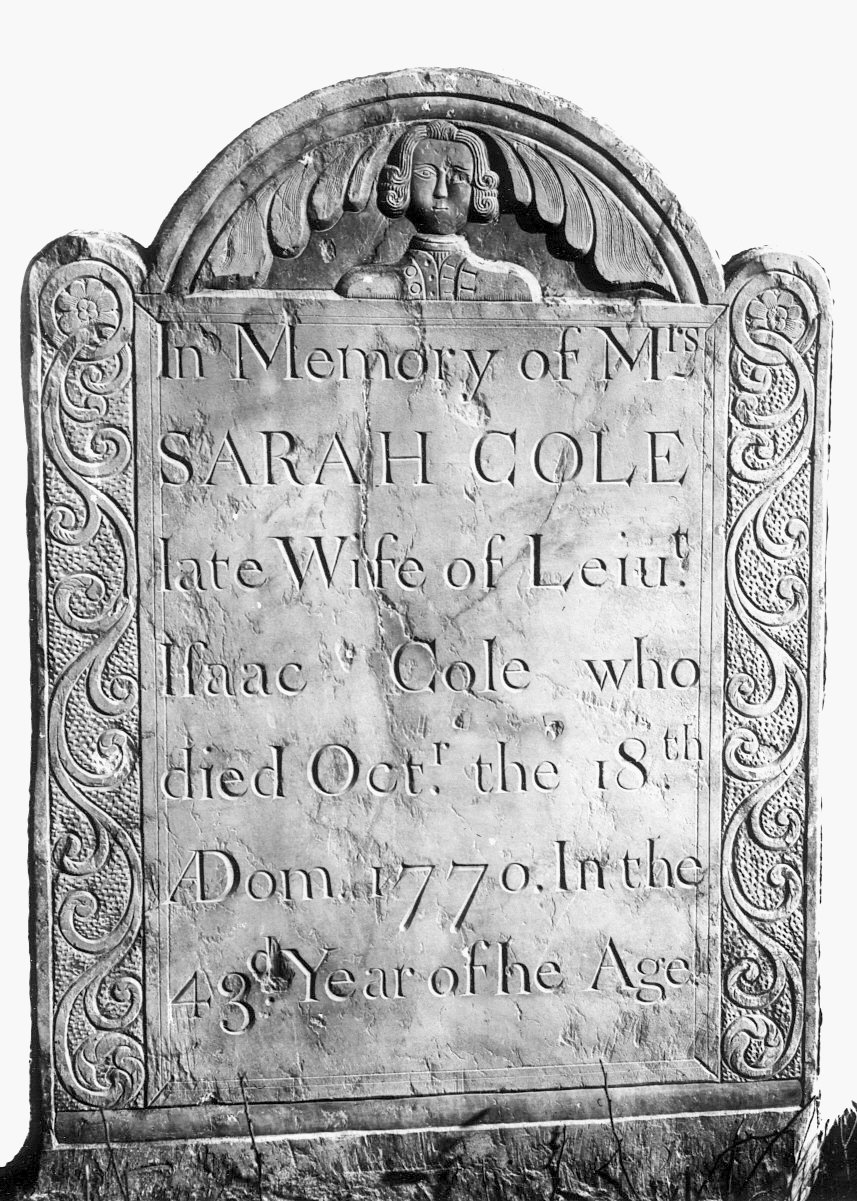 In Memory of Mrs
SARAH COLE
late Wife of Leiut.
Iſaac Cole who
died Octr. the 18th.
ÆDom. 1770. In the
43d. Year of he Age.